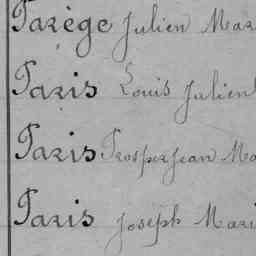 Parège Julien Mar
Paris Louis Julien
Paris Prosper Jean Ma
Paris Joseph Mari